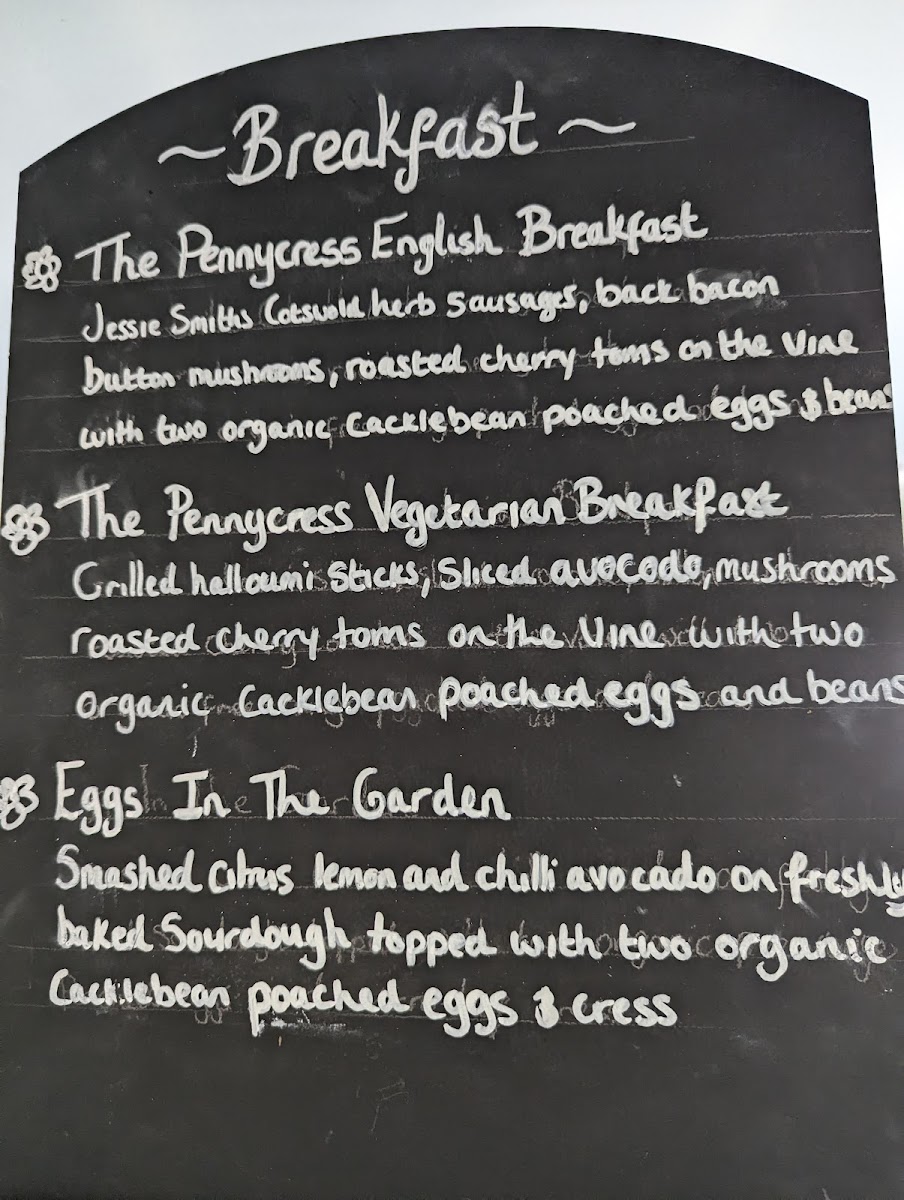 ~ Breakfast ~
The Pennycress English Breakfast
Jessie Smiths Cotswold herb sausages, back bacon
button mushrooms, roasted cherry toms on the vine
with two organic Cacklebean poached eggs & beans
The Pennycress Vegetarian Breakfast
Grilled halloumi sticks, sliced avocado, mushrooms
roasted cherry toms on the vine with two
organic Cacklebean poached eggs and beans
Eggs In The Garden
Smashed citrus lemon and chilli avocado on freshly
baked Sourdough topped with two organic
Cacklebean poached eggs & cress